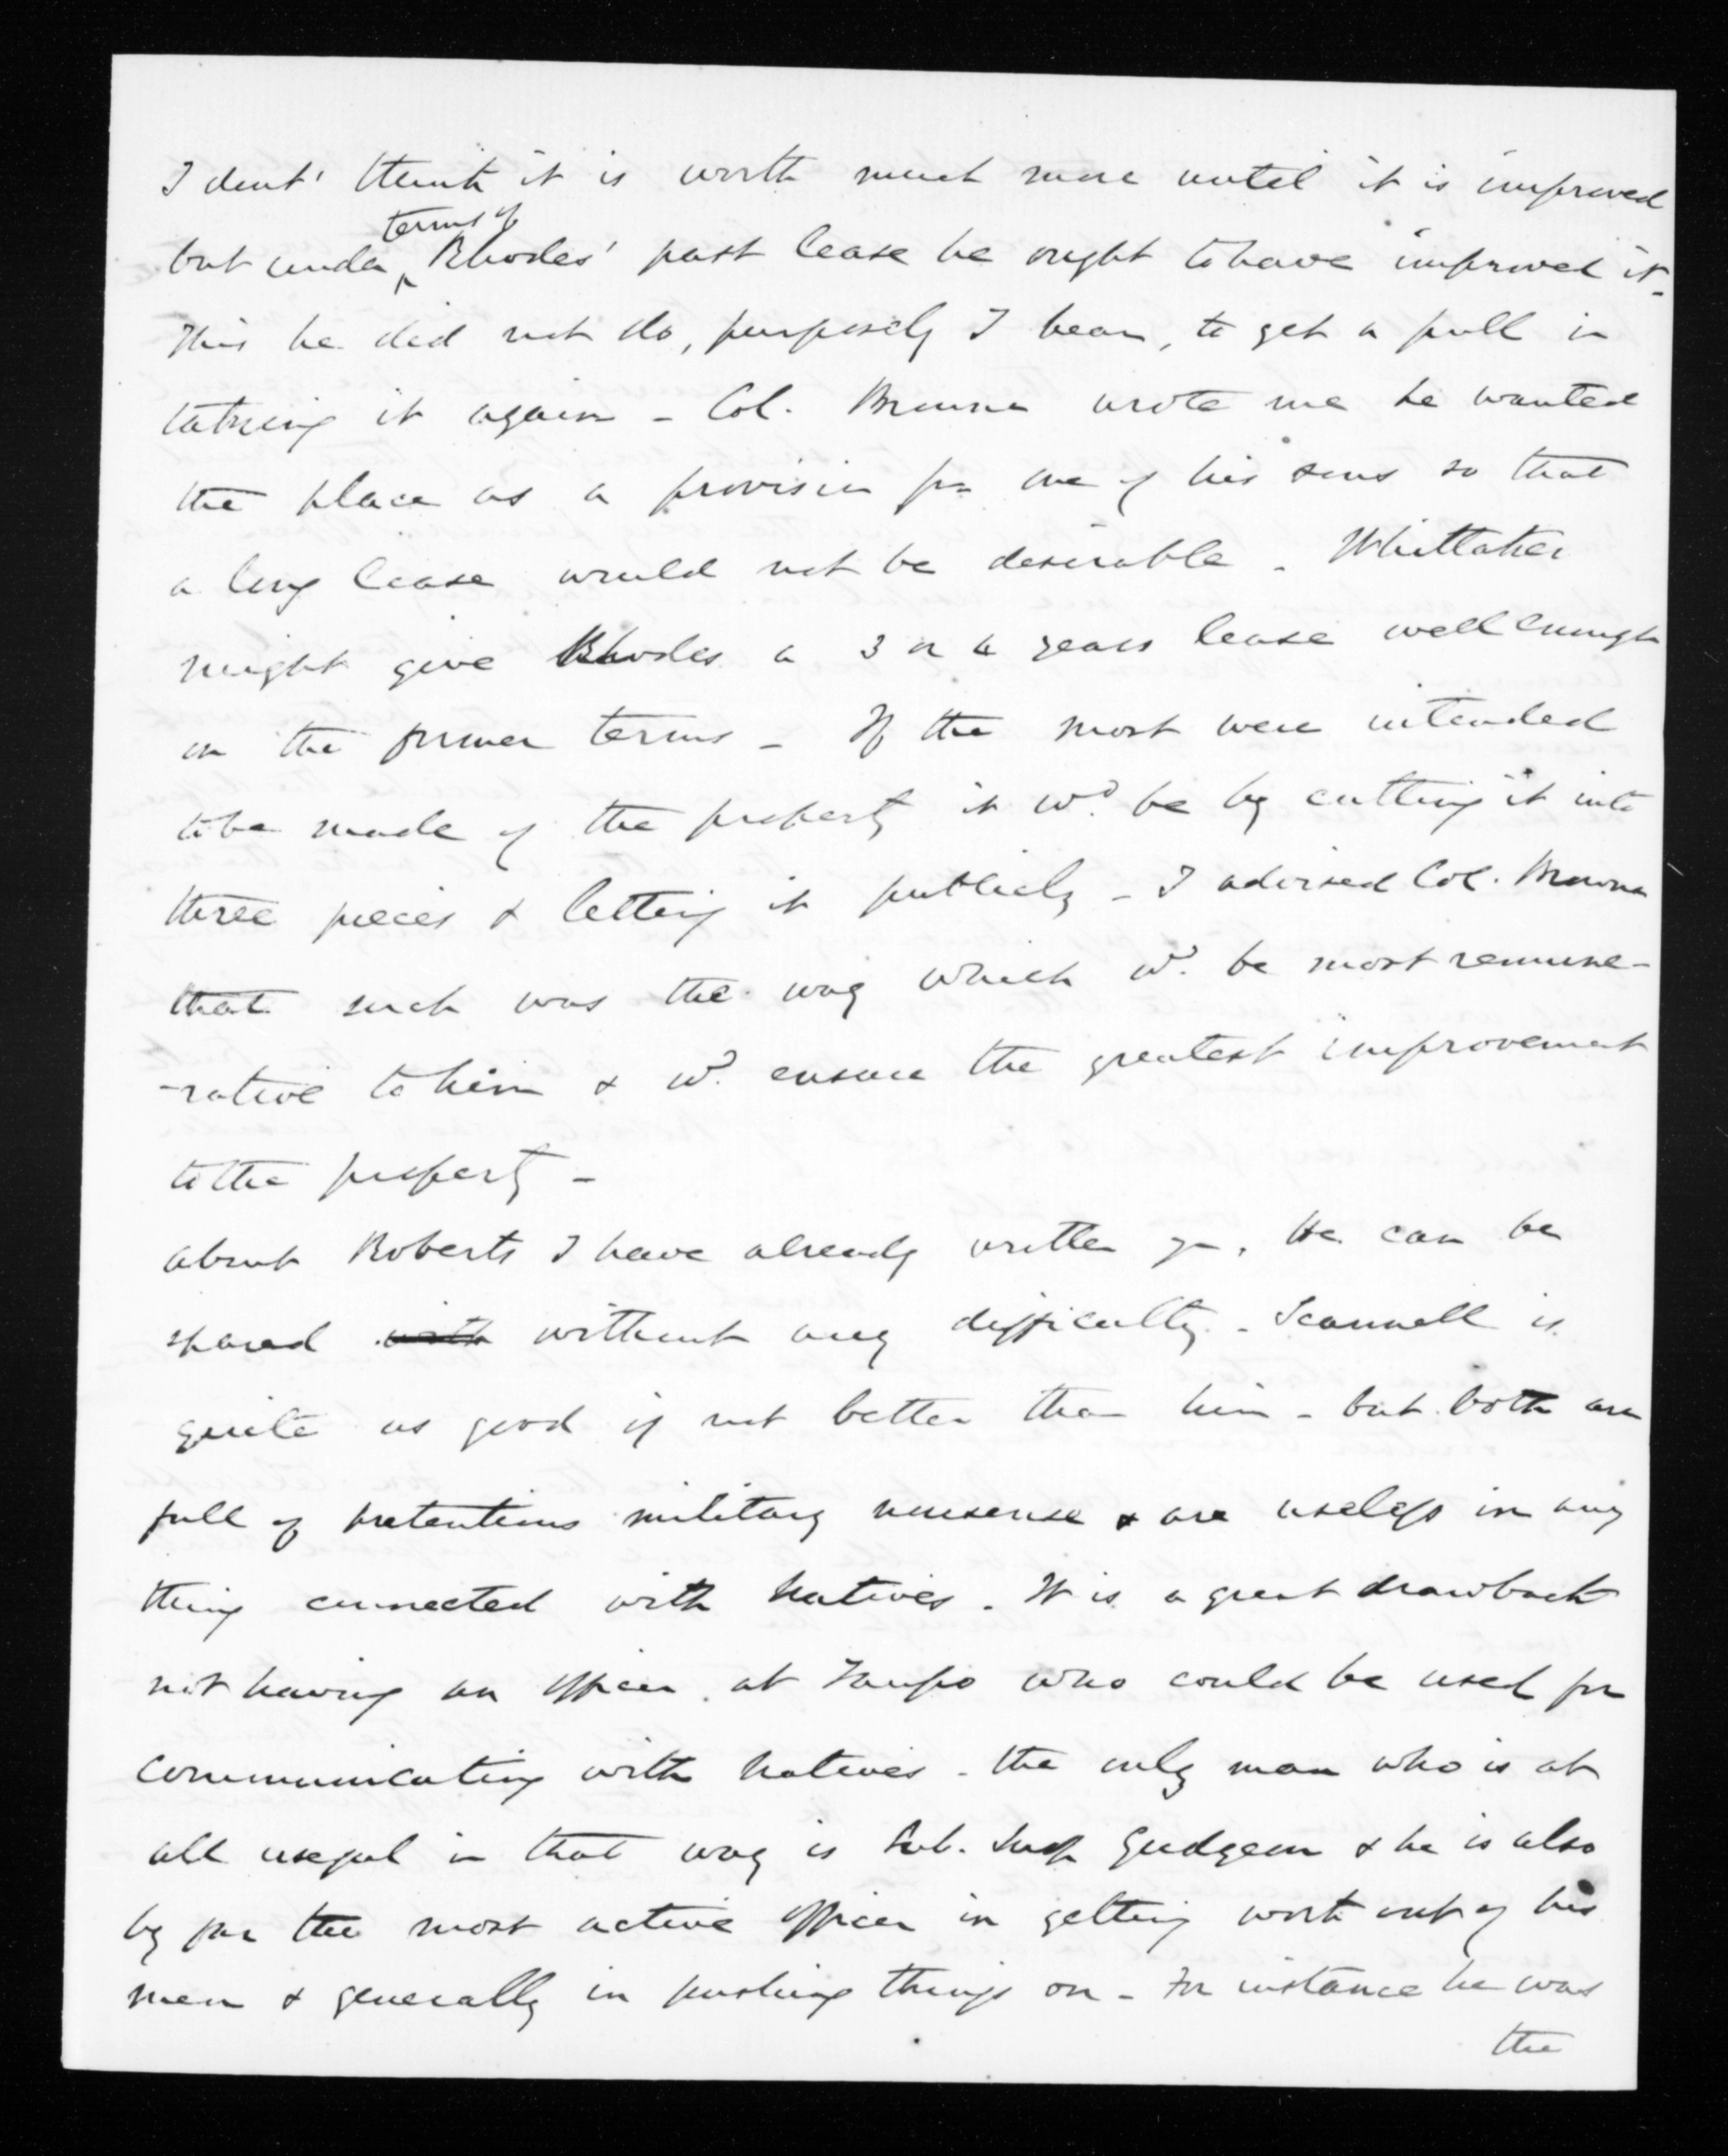 I dont' think it is worth much more until it is improved
but under terms of Rhodes' past lease he ought to have improved it_
This he did not do, purposely I hear, to get a pull in
taking it again - Col. Browne wrote me he wanted
the place as a provision for one of his sons so that
a long lease would not be desirable - Whittaker
might give Rhodes a 3 or 4 years lease well enough
on the former terms - If the most were intended
to be made of the property it wd. be by cutting it into
three pieces & letting it publicly - I advised Col. Browne
that such was the way which wd. be most remune-
-rative to him & wd. ensure the greatest improvement
to the property -
about Roberts I have already written you. He can be
spared with without any difficulty - Scannell is
quite as good if not better than him - but both are
full of pretentious military nonsense & are useless in any
thing connected with Natives. It is a great drawback
not having an officer at Taupo who could be used for
communicating with Natives - the only man who is at
all useful in that way is Sub. Insp Gudgeon & he is also
by far the most active officer in getting work out of his
men & generally in pushing things on - For instance he was
the